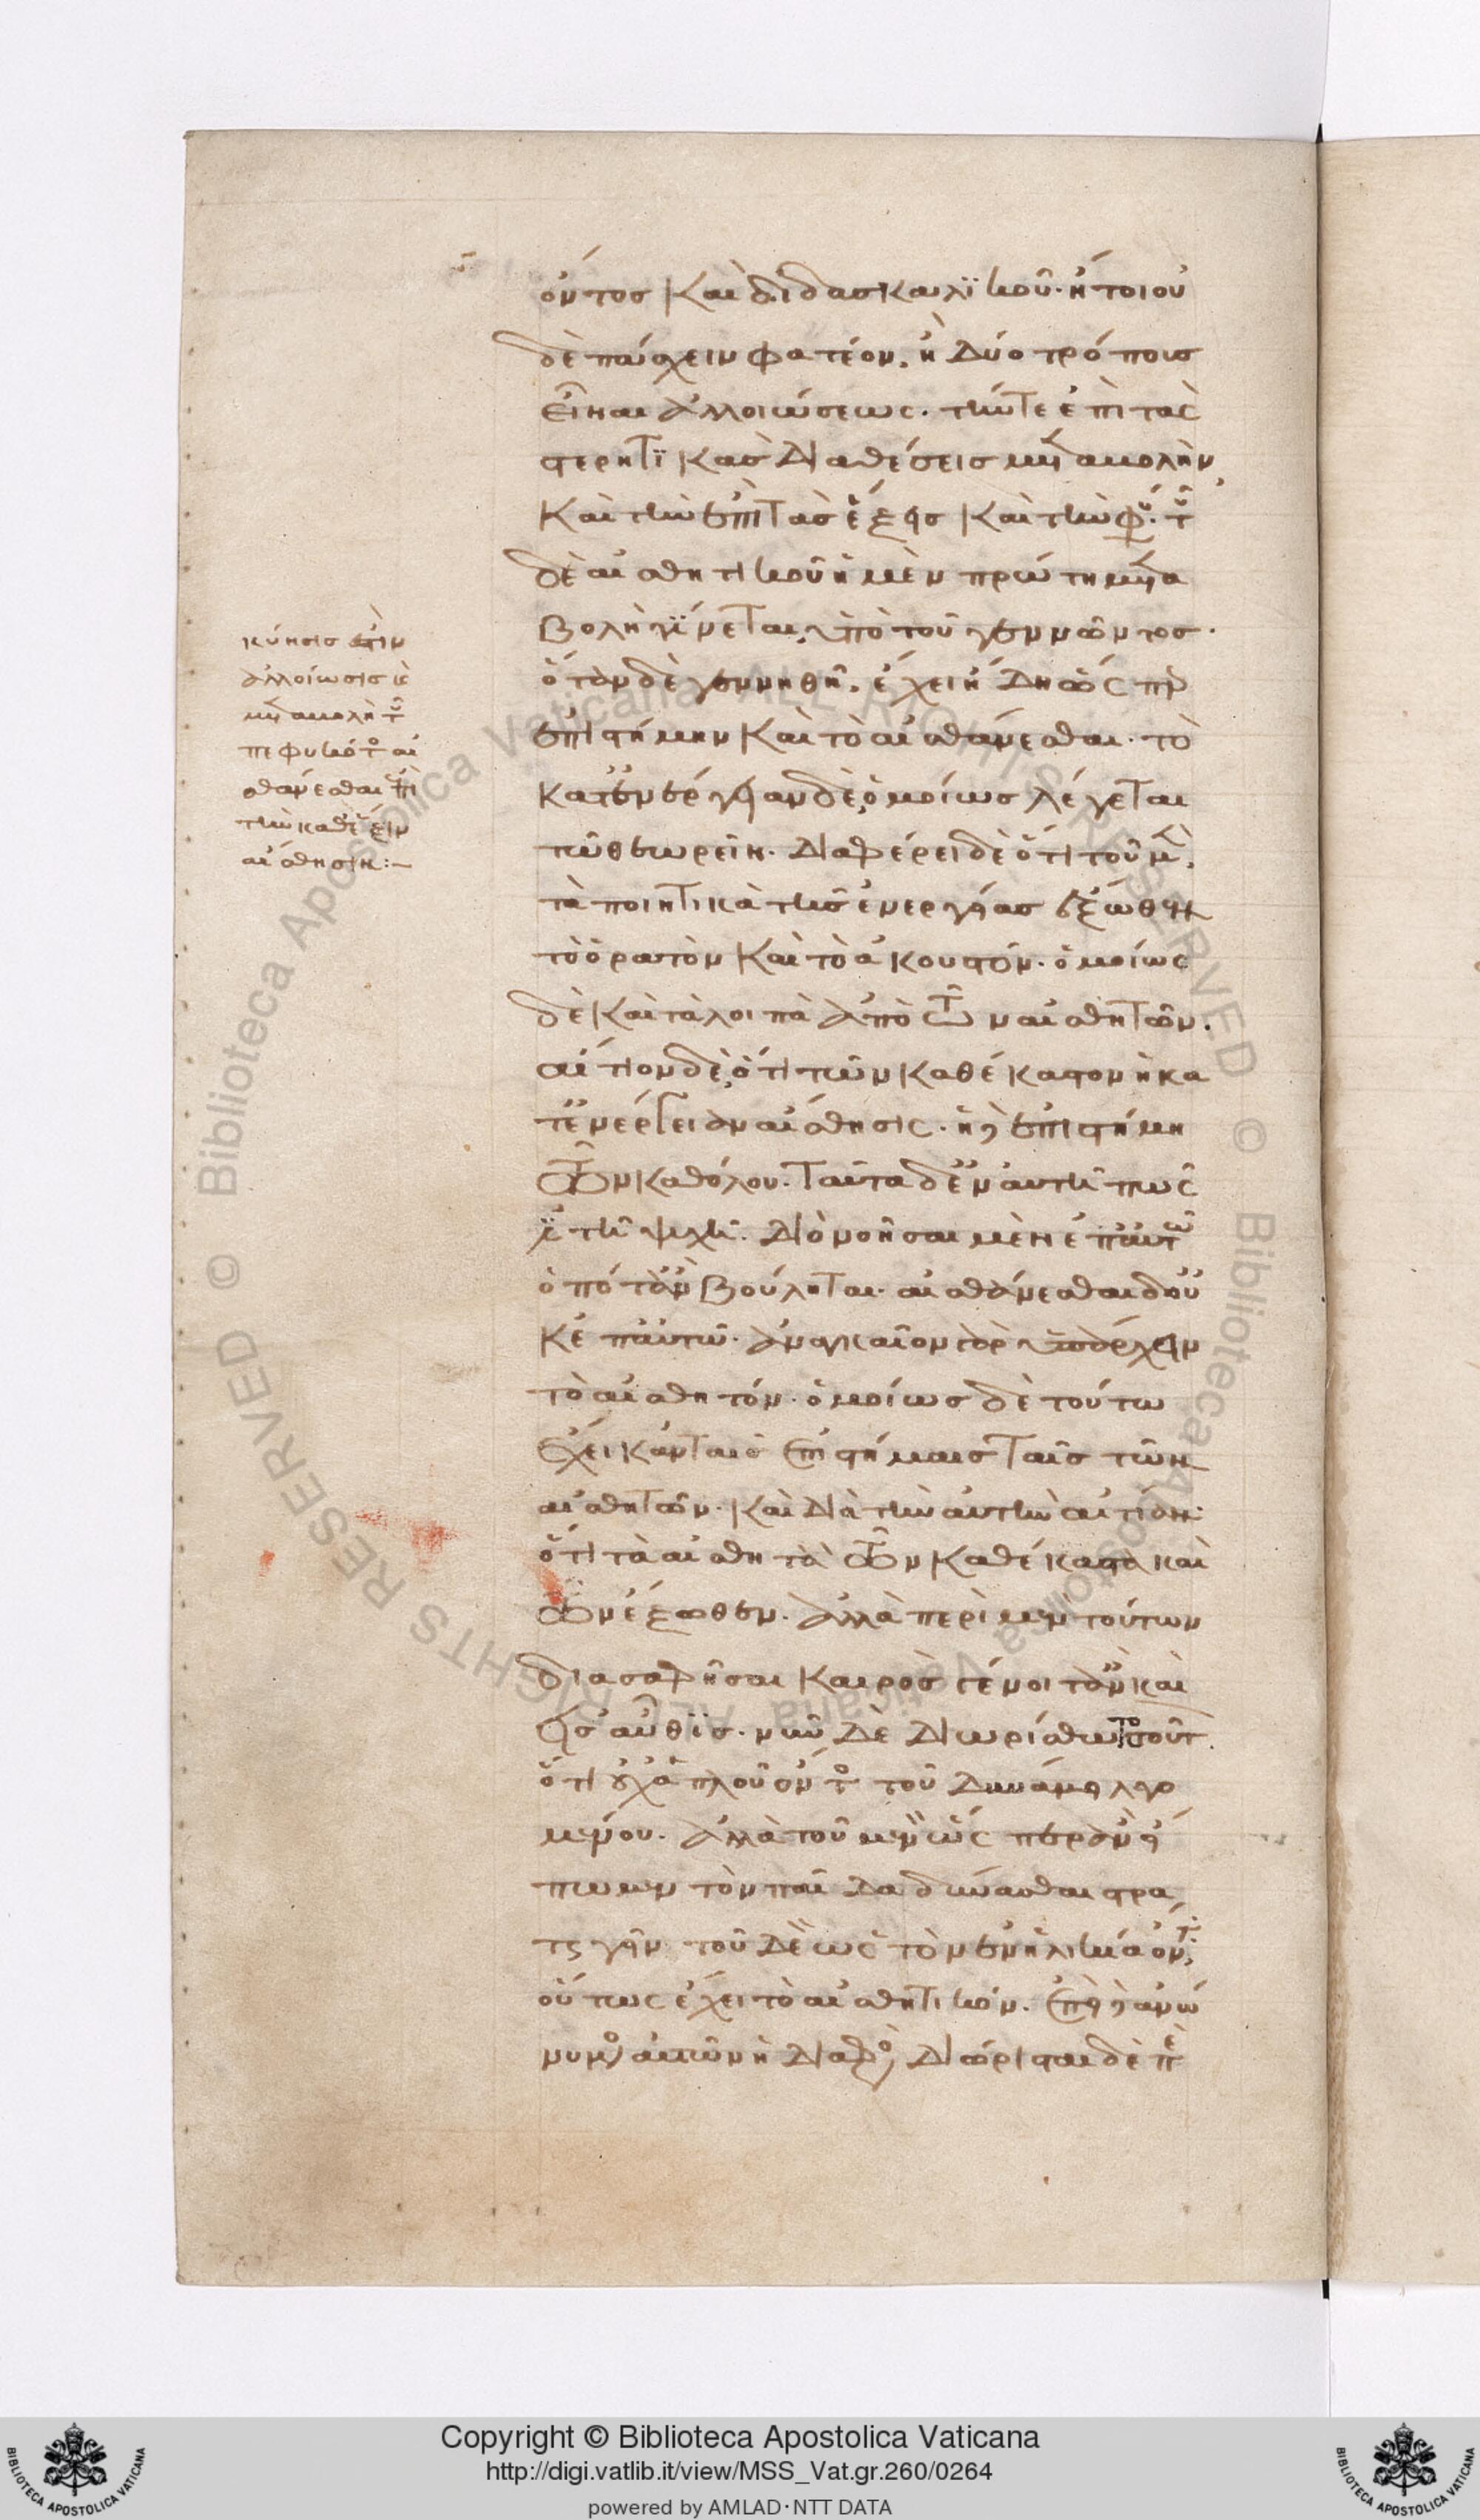 ὄντος καὶ διδασκαλικοῦ. ἤτοι οὐ
δὲ πάσχειν φατέον. ἢ δύο τρόπους
εἶναι ἀλλοιώσεως. τήν τε ἐπὶ τὰς
στερητικὰς διαθέσεις μεταβολὴν,
καὶ τὴν ἐπὶ τὰς ἕξεις καὶ τὴν φύσιν. τοῦ
δὲ αἰσθητικοῦ ἡ μὲν πρώτη μετα
βολὴ γίνεται, ὑπὸ τοῦ γεννῶντος.
ὅταν δὲ γεννηθῆ. ἔχει ἤδη ὥσπερ
ἐπιστήμην καὶ τὸ αἰσθάνεσθαι. τὸ
κατ' ἐνέργειαν δὲ, ὁμοίως λέγεται
τῶ θεωρεῖν. διαφέρει δὲ ὅτι τοῦ μὲν,
τὰ ποιητικὰ τῆς ἐνεργείας ἔξωθεν
τὸ ὁρατὸν καὶ τὸ ἀκουστόν. ὁμοίως
δὲ καὶ τὰ λοιπὰ ἀπὸ τῶν αἰσθητῶν.
αἴτιον δὲ, ὅτι τῶν καθέκαστον ἡ κα
τ' ἐνέργειαν αἴσθησις. ἡ δ' ἐπιστήμη
τῶν καθόλου. ταῦτα δ' ἐν αὐτῆ πώς
ἐστι τῆ ψυχῆ. διὸ νοῆσαι μὲν ἐπ' αὐτῶ
ὁπόταν βούληται. αἰσθάνεσθαι δ' οὐ
κ ἐπ' αὐτῶ. ἀναγκαῖον γὰρ ὑπάρχειν
τὸ αἰσθητόν. ὁμοίως δὲ τοῦτο
ἔχει κἀν ταῖς ἐπιστήμαις ταῖς τῶν
αἰσθητῶν. καὶ διὰ τὴν αὐτὴν αἰτίαν.
ὅτι τὰ αἰσθητὰ τῶν καθέκαστα καὶ
τῶν ἔξωθεν. ἀλλὰ περὶ μὲν τούτων
διασαφῆσαι καιρὸς γένοιτ' ἂν καὶ
εἰσαῦθις. νῦν δὲ διωρίσθω τοσοῦτον
ὅτι οὐχ ἁπλοῦ ὄντος τοῦ δυνάμει λεγο
μένου. ἀλλὰ τοῦ μὲν ὥσπερ ἂν εἴ
πωμεν τὸν παῖδα δύνασθαι στρα
τηγεῖν τοῦ δὲ ὡς τὸν ἐν ἡλικία ὄντα,
οὕτως ἔχει τὸ αἰσθητικόν. ἐπεὶ δ' ἀνώ
νυμος αὐτῶν ἡ διαφορά, διώρισται δὲ περὶ
κίνησις ἐστὶν
ἀλλοίωσις καὶ
μεταβολὴ τοῦ
πεφυκότος αἰ
σθάνεσθαι ἐπὶ
τὴν καθ' ἕξιν
αἴσθησιν:–
Copyright © Biblioteca Apostolica Vaticana
http://digi.vatlib.it/view/MSS_Vat.gr.260/0264
powered by AMLAD·NTT DATA